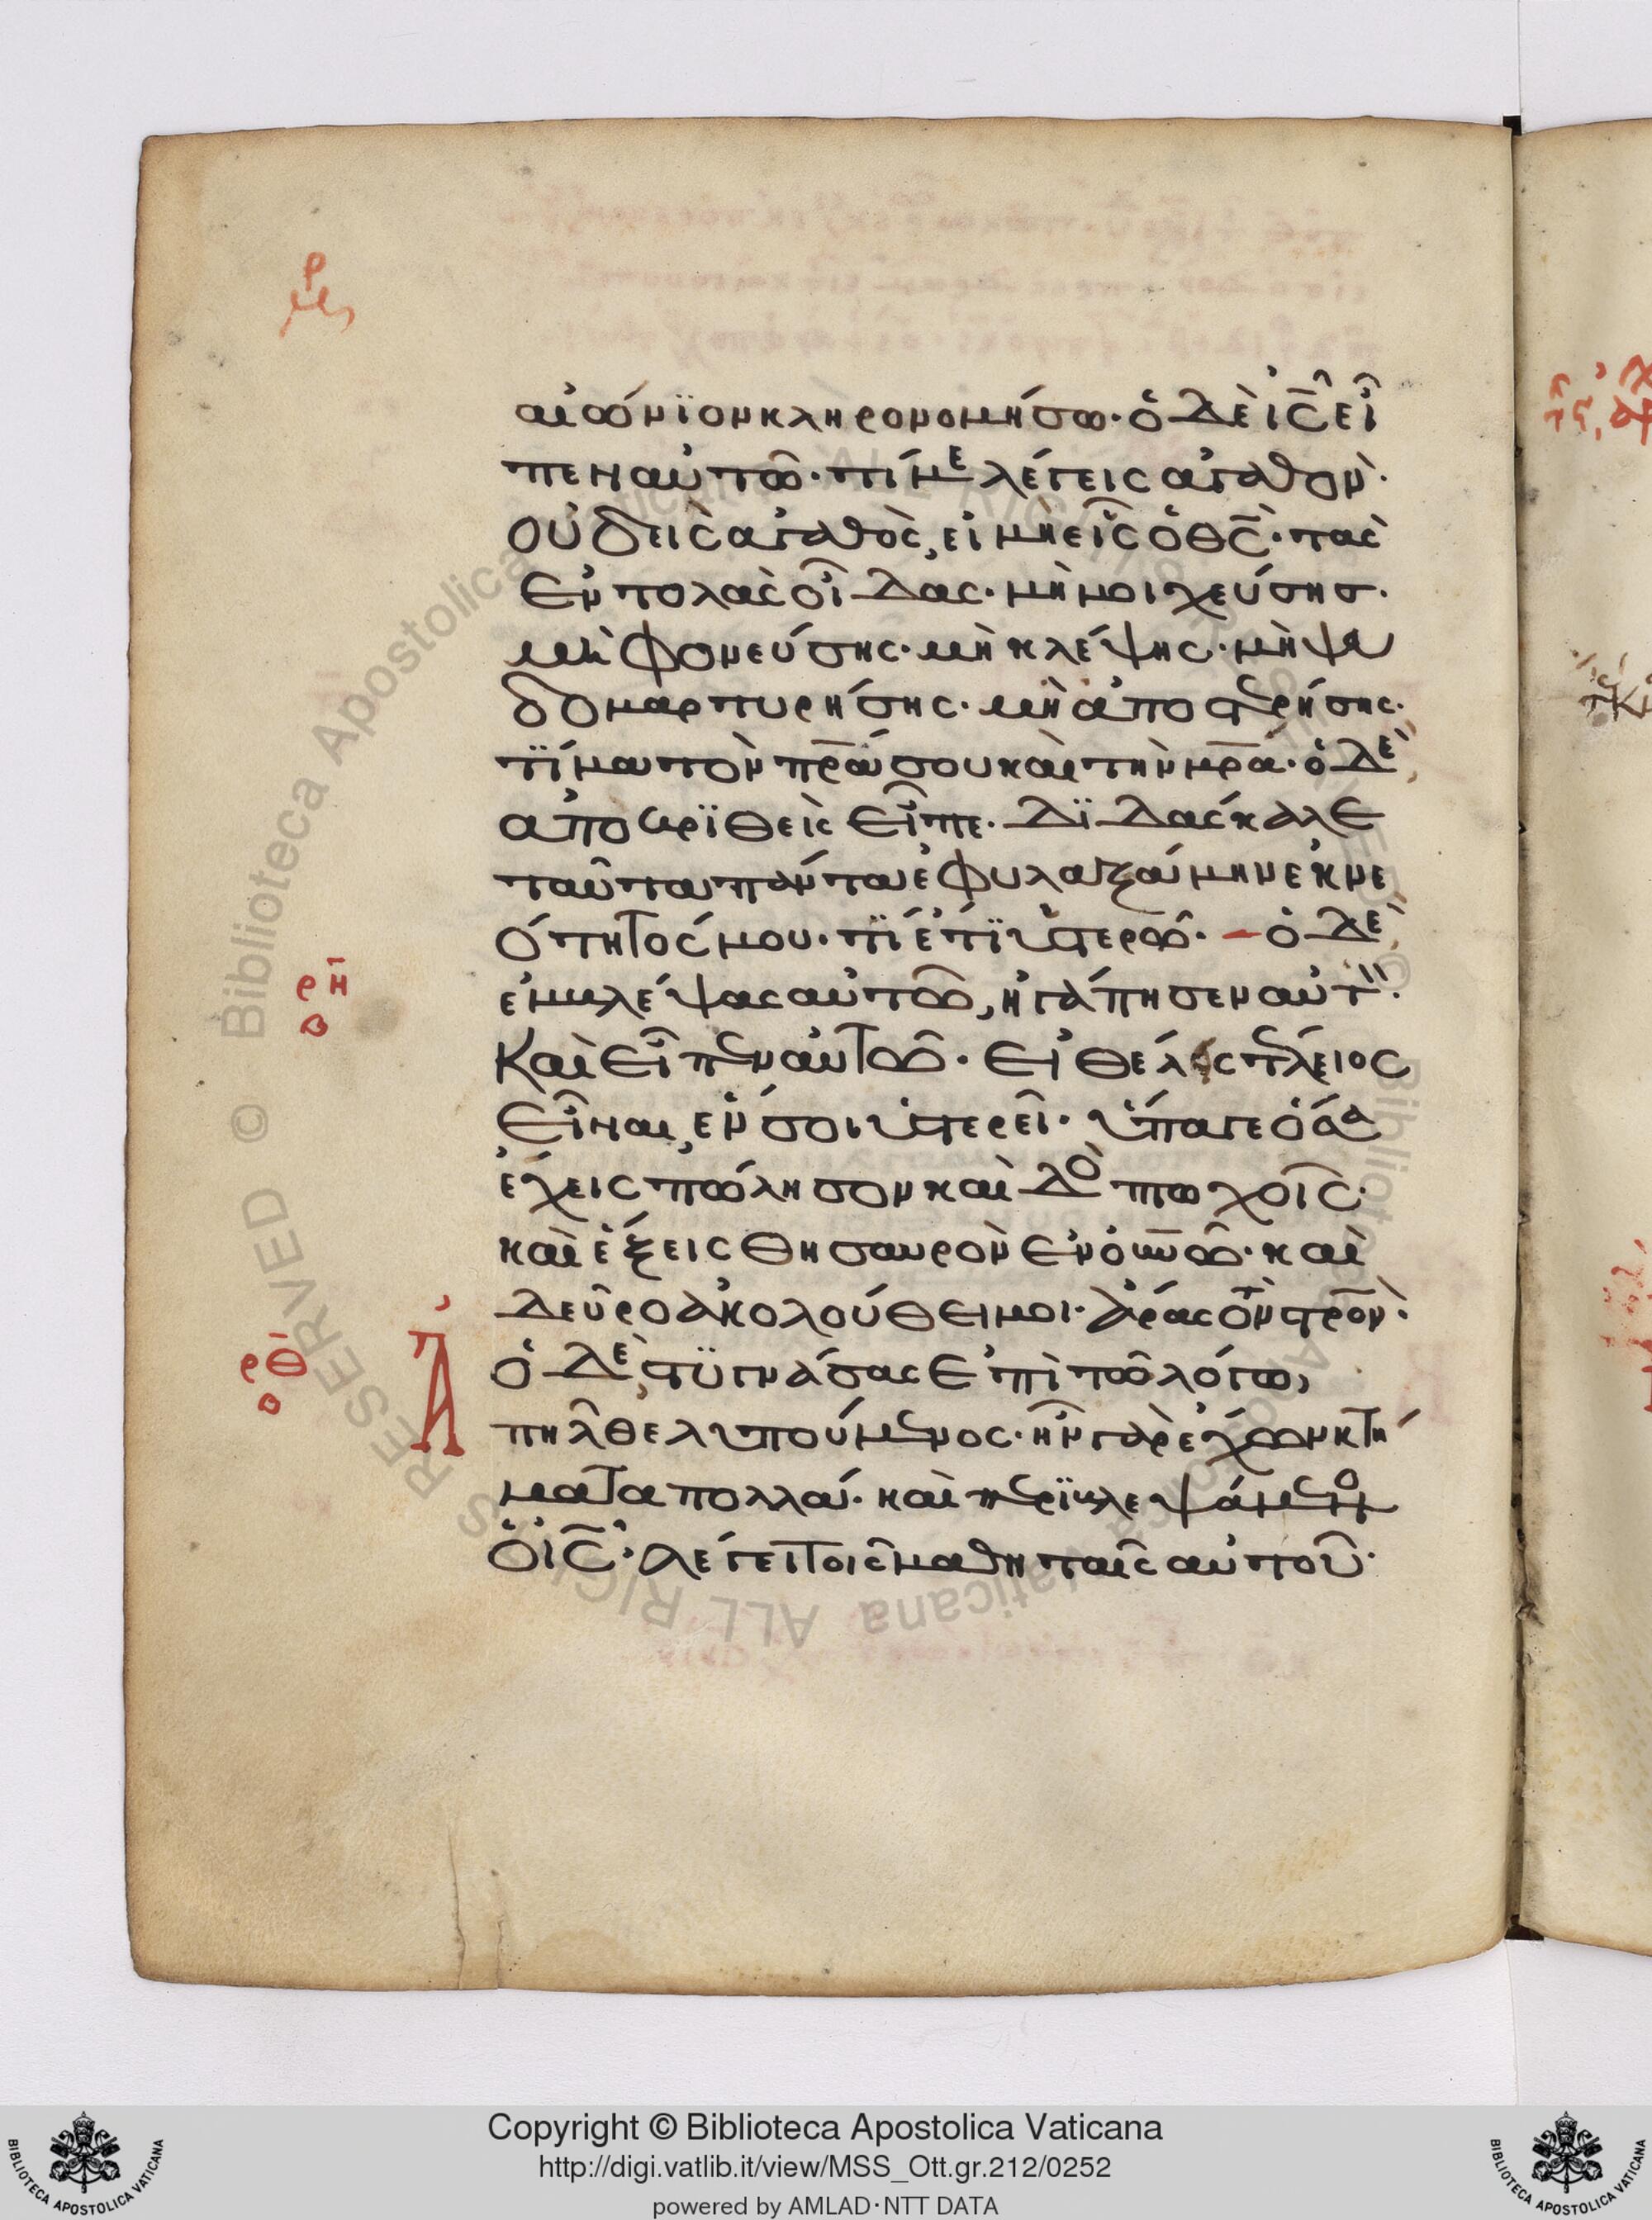 αἰώνϊον κληρονομήσω· ὁ δὲ ἰ̅ς̅ εἶ
πεν αὐτῶ· τί με λέγεις ἀγαθὸν·
οὐδεὶς ἀγαθὸς, εἰ μὴ εἷς ὁ θ̅ς̅· τὰς
ἐντολὰς οἶδας· μὴ μοιχεύσης·
μὴ φονεύσης· μὴ κλέψης· μὴ ψευ
δομαρτυρήσης· μὴ ἀποστερήσης·
τΐμα τὸν π̅ρ̅α σου καὶ τὴν μ̅ρ̅α· ὁ δὲ,
ἀποκρϊθεὶς εἶπε· δϊδάσκαλε
ταῦτα πάντα ἐφυλαξάμην ἐκ νε
ότητός μου· τΐ ἔτϊ ὑστερῶ· ὁ δὲ,
ἐμβλέψας αὐτῶ, ἠγάπησεν αὐτὸν·
καὶ εἶπεν αὐτῶ· εἰ θέλεις τέλειος
εἶναι, ἕν σοι ὑστερεῖ· ὕπαγε ὅσα
ἔχεις πώλησον καὶ δὸς πτωχοῖς·
καὶ ἕξεις θησαυρὸν ἐν ο̅υ̅ν̅ῶ· καὶ
δεῦρο ἀκολούθει μοι· ἄρας τὸν σ̅ρ̅ὸν·
ὁ δὲ, στϋγνάσας ἐπὶ τῶ λόγω, ἀ
πῆλθε λυπούμενος· ἦν γὰρ ἔχων κτή
ματα πολλά· καὶ περϊβλεψάμενος
ὁ ἰ̅ς̅· λέγει τοῖς μαθηταῖς αὐτοῦ·
ρ̅η̅
β
ρ̅θ̅
β
Copyright © Biblioteca Apostolica Vaticana
http://digi.vatlib.it/view/MSS_Ott.gr.212/0252
powered by AMLAD·NTT DATA